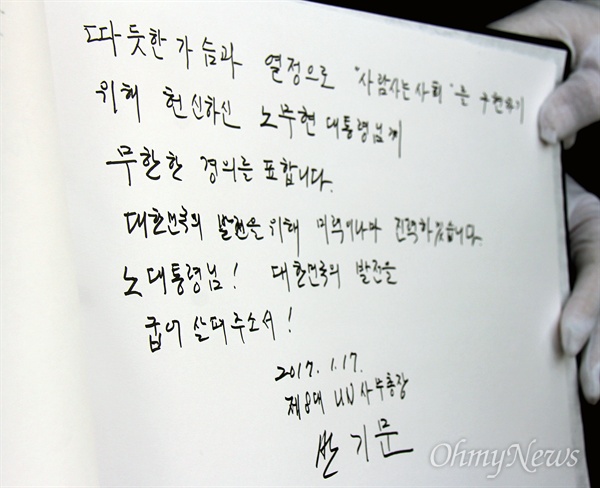 따듯한 가슴과 열정으로 "사람사는 사회"를 구현하기
위해 헌신하신 노무현 대통령님께
무한한 경의를 표합니다.
대한민국의 발전을 위해 미력이나마 진력하겠습니다.
노대통령님! 대한민국의 발전을
굽어 살펴주소서!
2017. 1. 17.
제8대 UN 사무총장
반기문
OhmyNews